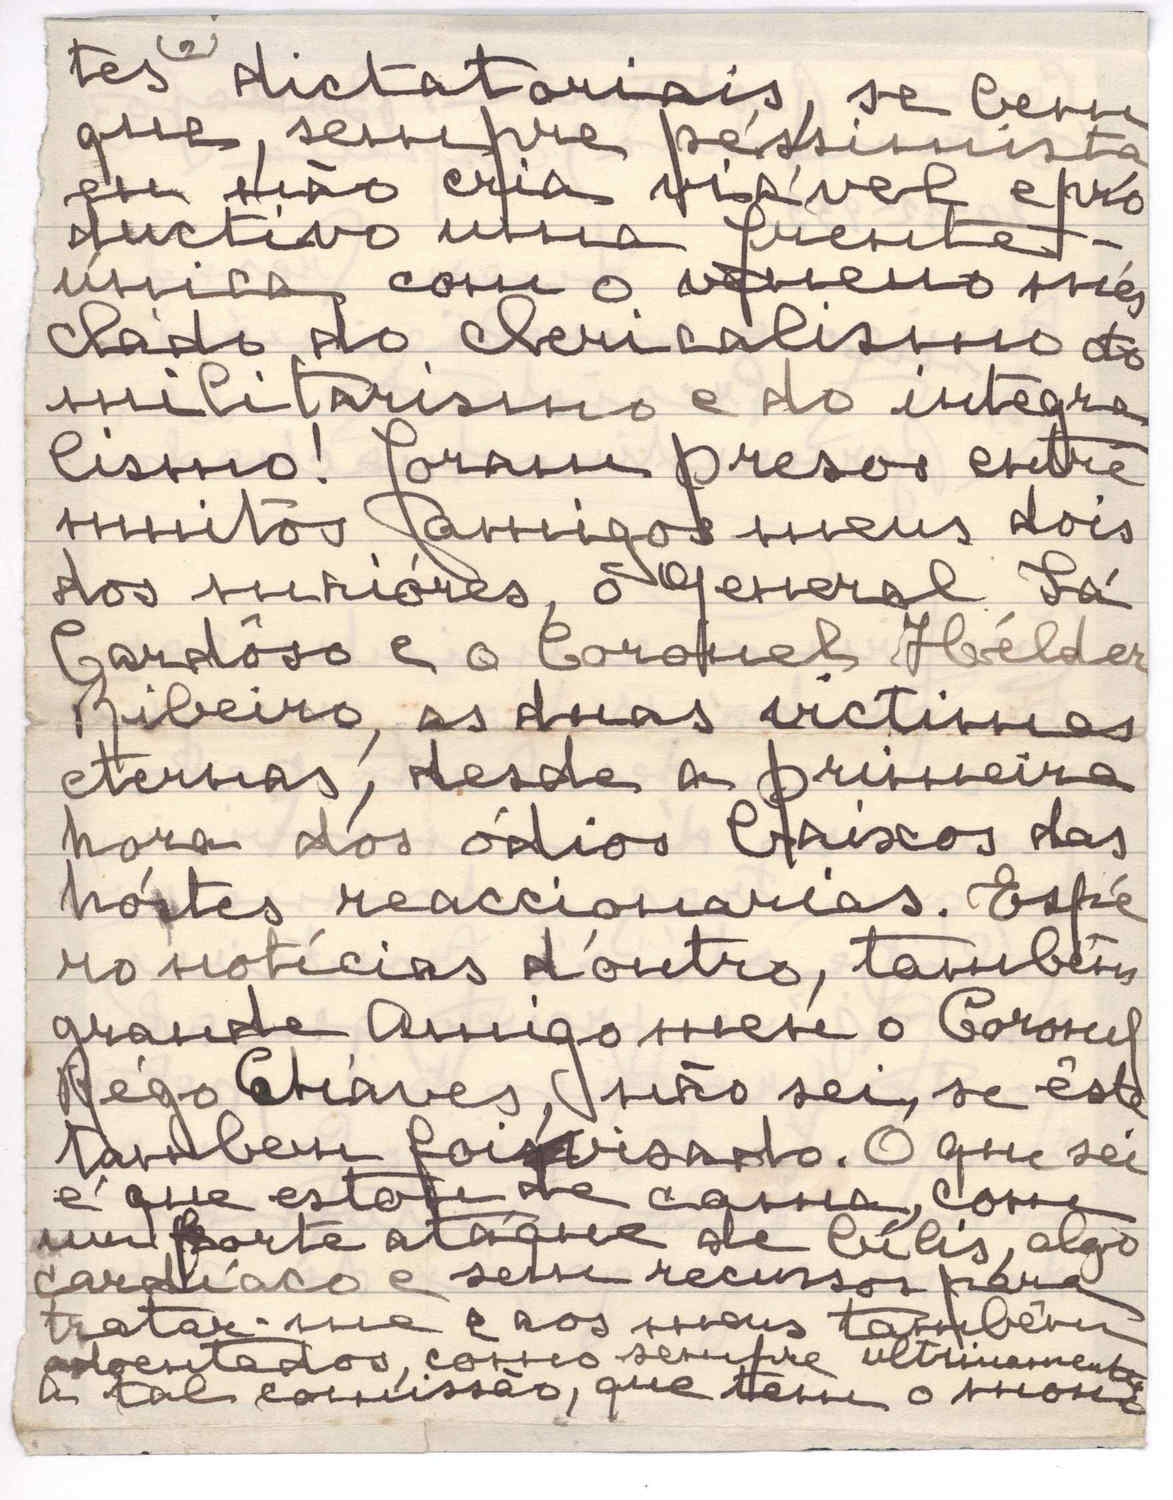 (2)
tes dictatoriais, se bem
que, sempre péssimista
eu não cria viável e pro
ductivo uma frente-
única, com o veneno més
clado do clericalismo do
militarismo e do integra
lismo! Foram presos entre
muitos amigos meus dois
dos maióres, o General Sá
Cardôso e o Coronel Hélder
Ribeiro, as duas victimas
eternas, desde a primeira
hora dos ódios líniscos das
hóstes reaccionarias. Espé
ro notícias d'outro, também
grande amigo meu o Coronel
Rêgo Chaves, não sei, se êste
tambem foi visado. O que sei
é que estou de cama, com
um forte atáque de bílis, algo
cardíaco e sem recursos para
tratar-me e aos meus também
adoentados, como sempre ultimamente
A tal comissão, que tem o mone